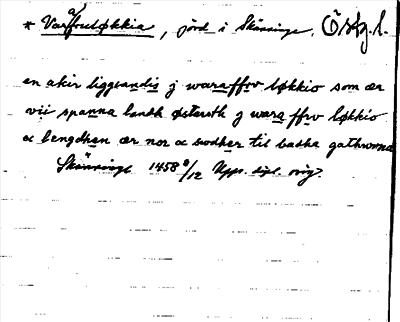 * Varffruløkkia, jord i Skänninge, Östg. l.
en akir liggiandis j waraffrv løkkio som ær
vii spanna landh østersth j wara ffrv løkkio
oc lengdhen ær nor oc sødher til badha gathwrna
Skänninge 1458 8/12 Upps. dipl. orig.